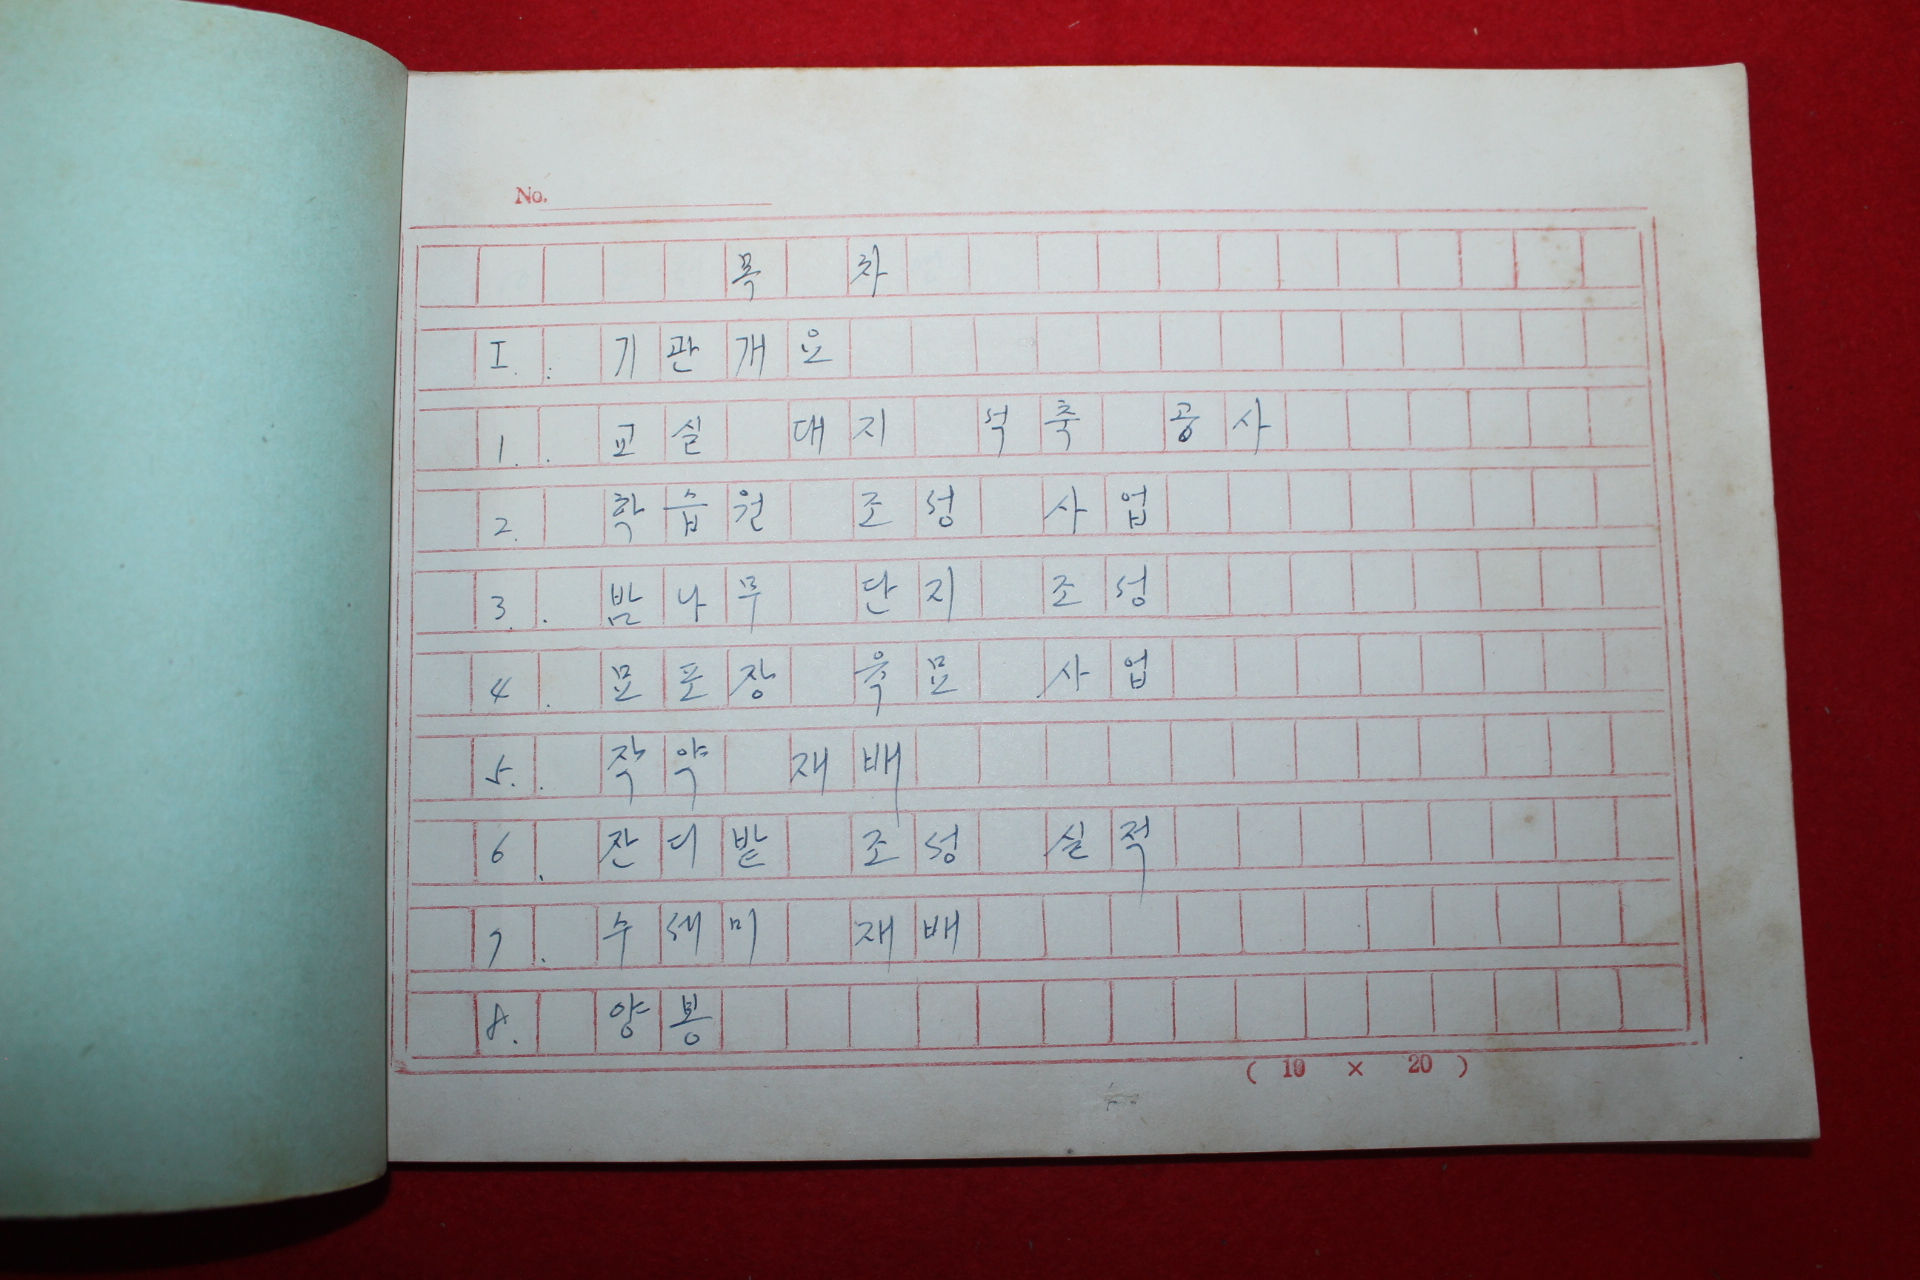 No.
목 차
I. 기관개요
1. 교실 대지 석축 공사
2. 학습원 조성 사업
3. 밤나무 단지 조성
4. 묘포장 육묘 사업
5. 작약 재배
6. 잔디밭 조성 실적
7. 수세미 재배
8. 양봉
( 10 × 20 )